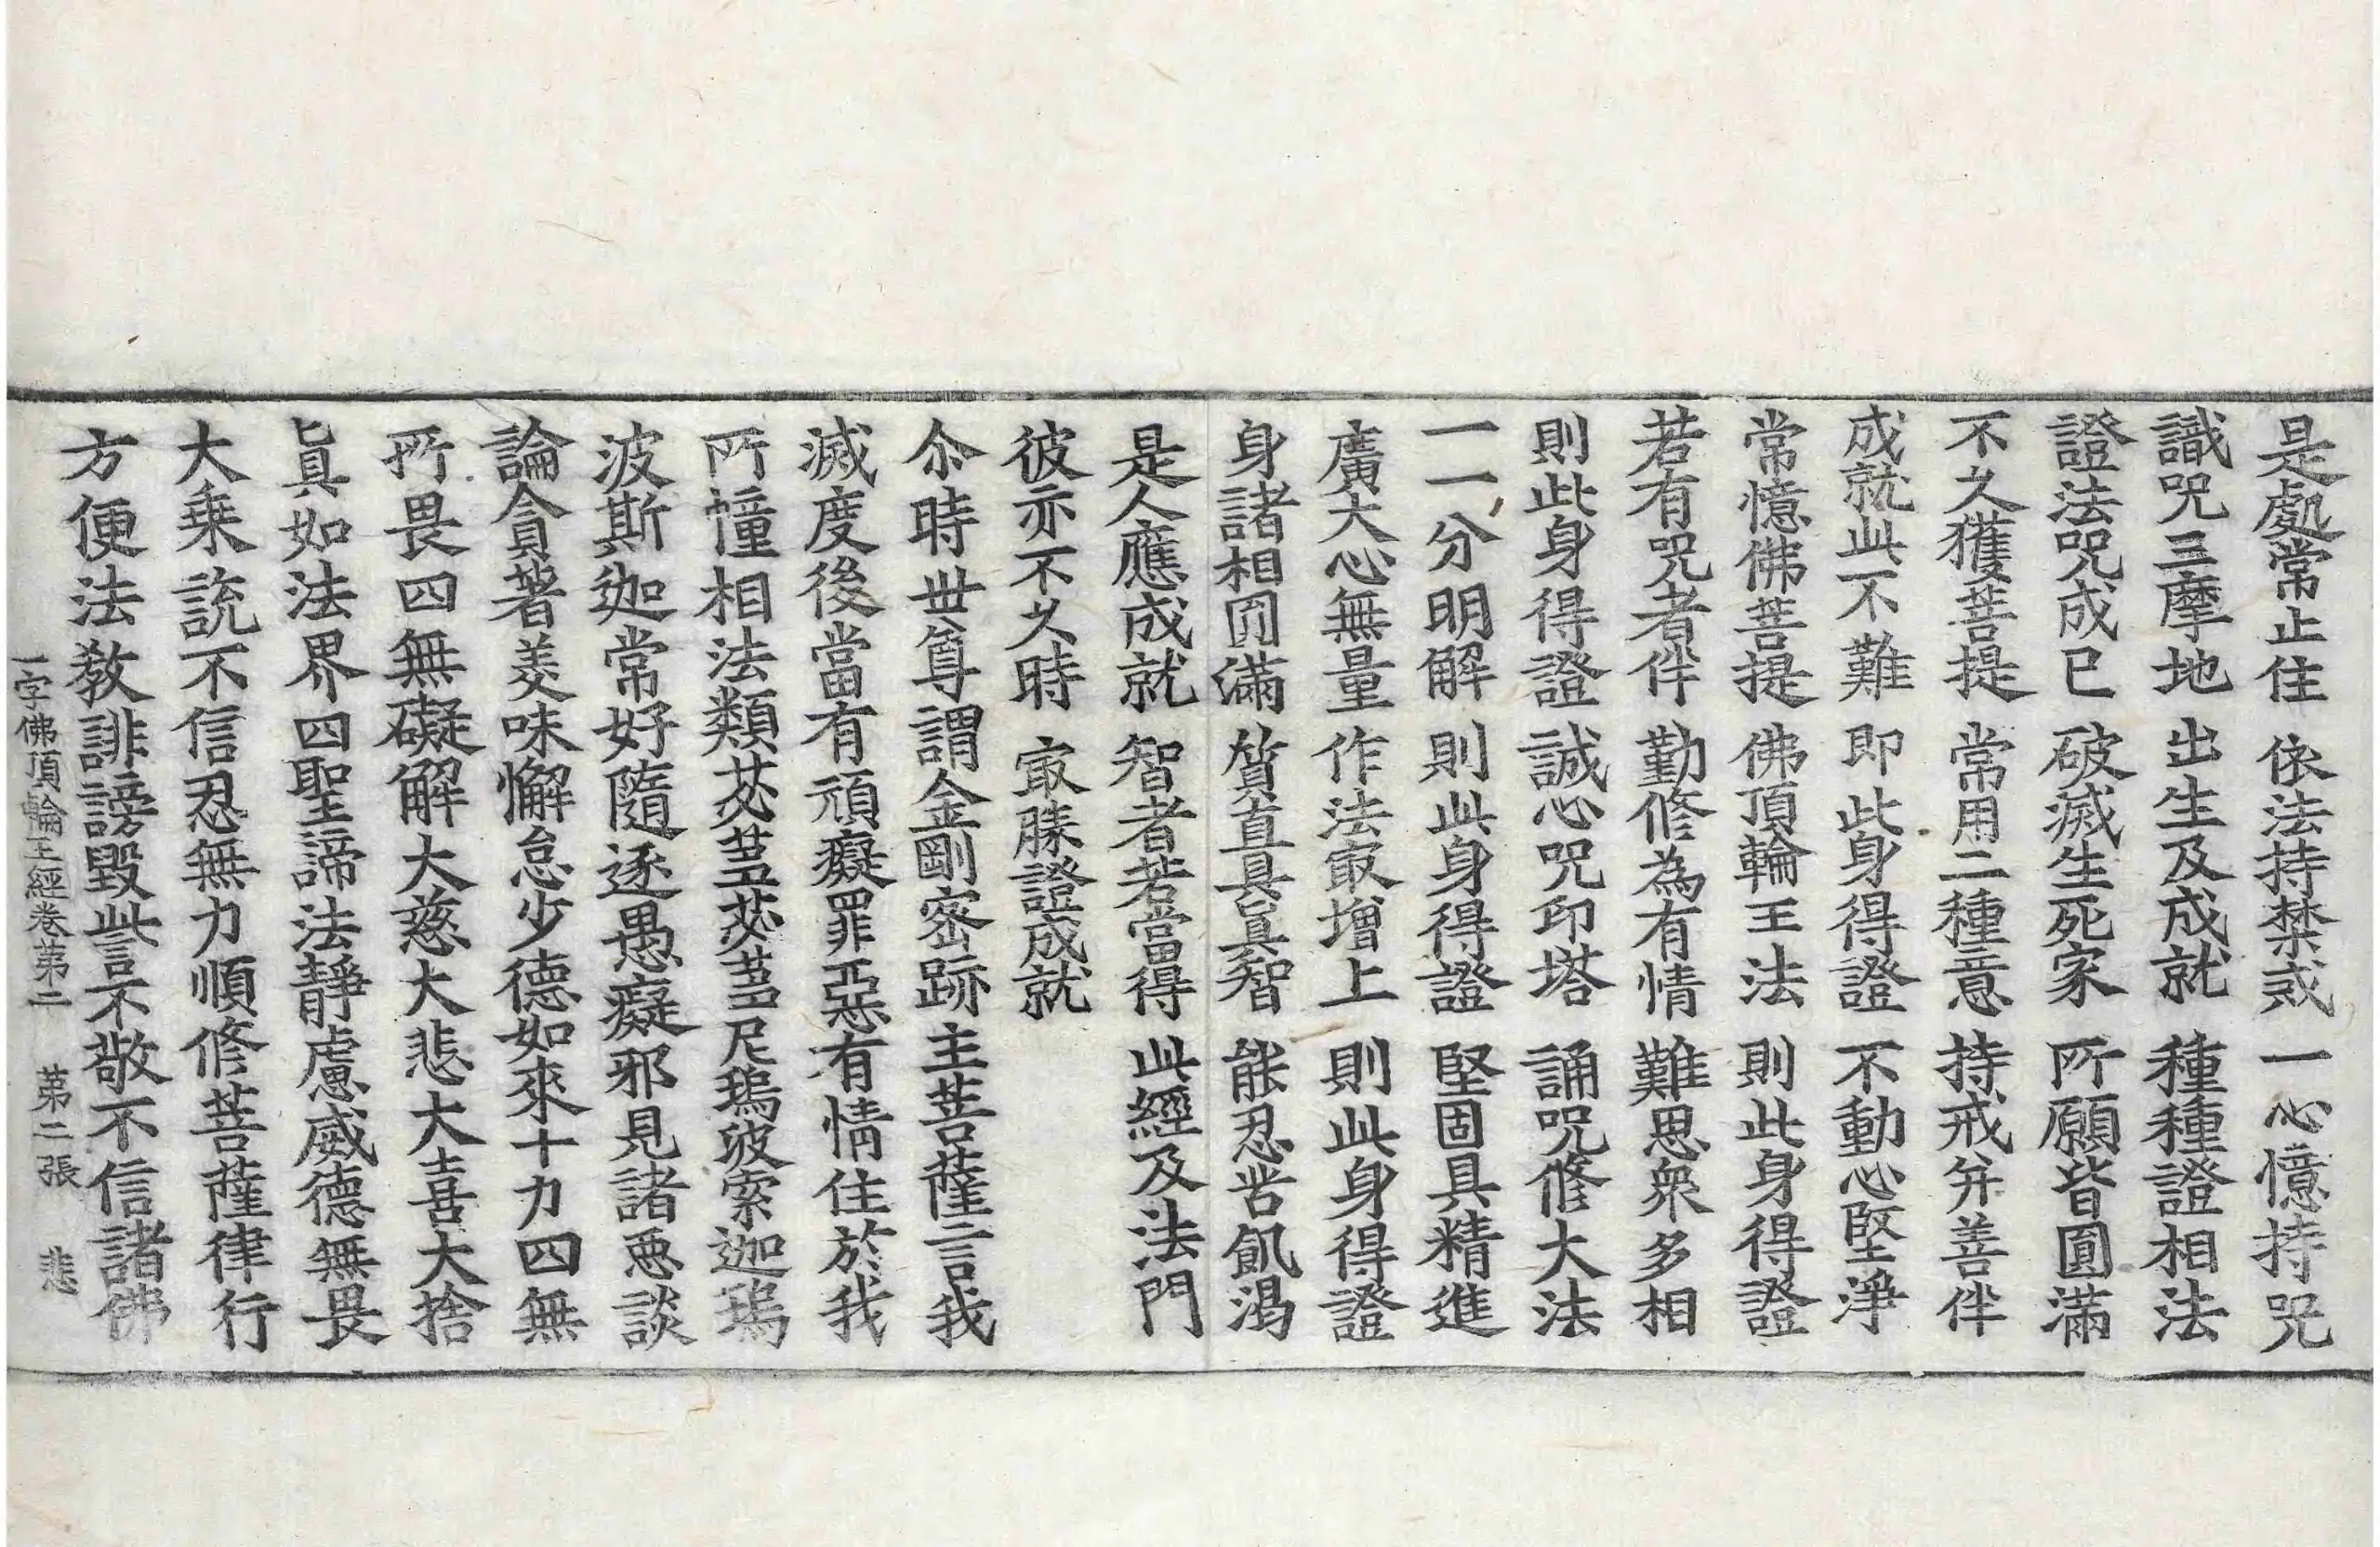 是處常止住　依法持禁戒　一心憶持呪
識呪三摩地　出生及成就　種種證相法
證法呪成已　破滅生死家　所願皆圓滿
不久獲菩提　常用二種意　持戒并善伴
成就此不難　即此身得證　不動心堅淨
常憶佛菩提　佛頂輪王法　則此身得證
若有呪者伴　勤修為有情　難思衆多相
則此身得證　誠心呪印塔　誦呪修大法
一一分明解　則此身得證　堅固具精進
廣大心無量　作法㝡增上　則此身得證
身諸相圓滿　質直具眞智　能忍苦飢渴
是人應成就　智者若當得　此經及法門
彼亦不久時　㝡勝證成就
尒時世尊謂金剛密跡主菩薩言我
滅度後當有頑癡罪惡有情住於我
所幢相法類苾芻苾芻尼鄔波索迦鄔
波斯迦常好隨逐愚癡邪見諸惡談
論貪著美味懈怠少德如來十力四無
所畏四無礙解大慈大悲大喜大捨
眞如法界四聖諦法靜慮威德無畏
大乘說不信忍無力順修菩薩律行
方便法教誹謗毀呰不敬不信諸佛
一字佛頂輪王經卷第二　第二張　悲